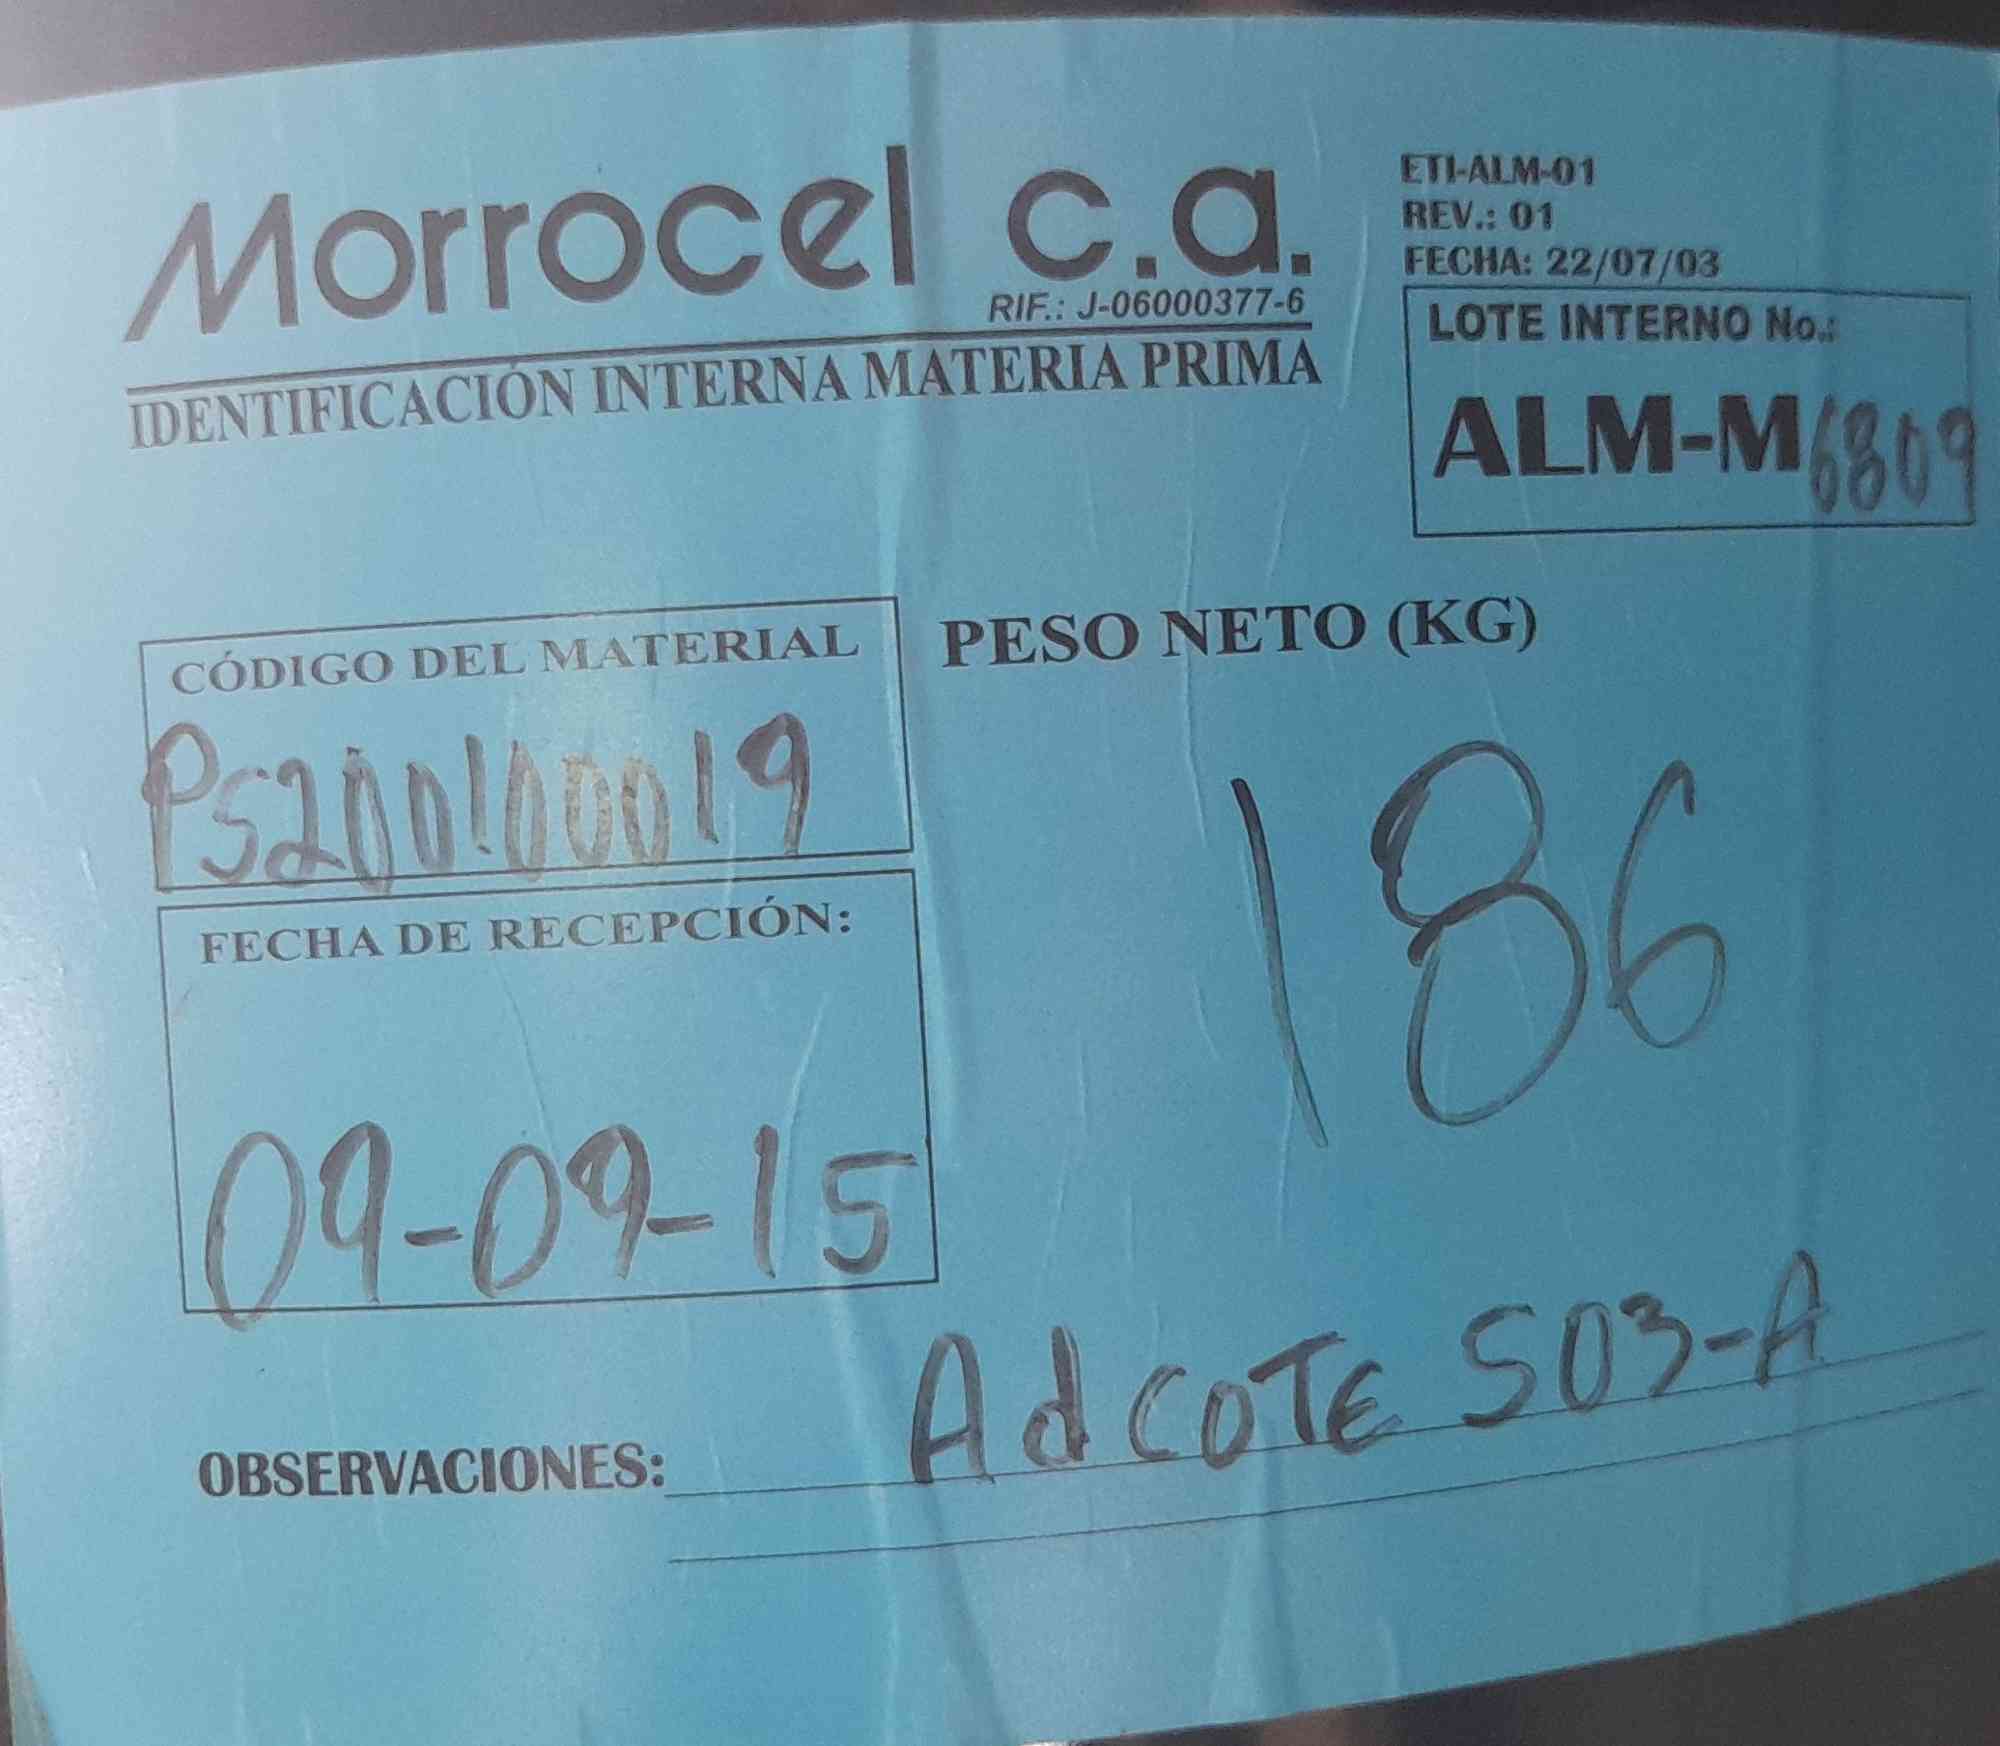 Morrocel c.a.
RIF.: J-06000377-6
IDENTIFICACIÓN INTERNA MATERIA PRIMA
ETI-ALM-01
REV.: 01
FECHA: 22/07/03
LOTE INTERNO No.:
ALM-M6809
CÓDIGO DEL MATERIAL
PS200100019
PESO NETO (KG)
186
FECHA DE RECEPCIÓN:
09-09-15
OBSERVACIONES: AdCOTE 503-A